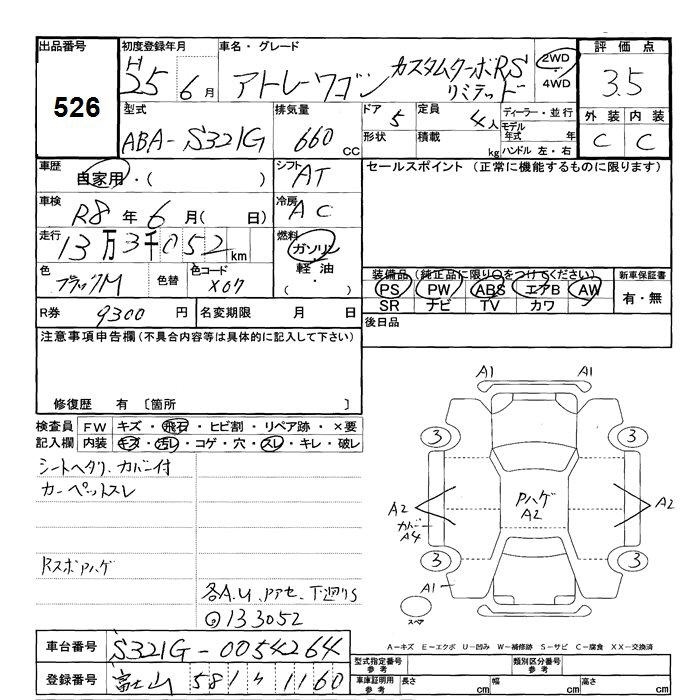 出品番号
526
初度登録年月
H25年6月
車名・グレード
アトレーワゴン カスタムターボRS
リミテッド
2WD
・
4WD
評価点
3.5
外装 内装
C C
型式
ABA-S321G
排気量
660 CC
ドア 5
形状
定員 4人
積載 kg
ディーラー・並行
モデル
年式 年
ハンドル 左・右
車歴
自家用・( )
シフト
AT
セールスポイント (正常に機能するものに限ります)
車検
R8年6月( 日)
冷房
AC
走行
13万3千052km
燃料
ガソリン
軽油
( ・ )
色
ブラックM
色替
色コード
X07
装備品 (純正品に限り○をつけてください)
PS PW ABS エアB AW
SR ナビ TV カワ
新車保証書
有・無
R券 9300円
名変期限 月 日
後日品
注意事項申告欄(不具合内容等は具体的に記入して下さい)
修復歴 有 〔箇所 〕
検査員
記入欄
FW キズ・飛石・ヒビ割・リペア跡・×要
内装 キズ・汚レ・コゲ・穴・スレ・キレ・破レ
シートヘタリ、カバー付
カーペットスレ
RスポAハゲ
各A.U、アアセ、下廻りS
133052
A1 A1
3 3
Pハゲ
A2
A2
カバー
A4
A2
3 3
A1
スペア
A-キズ E-エクボ U-凹み W-補修跡 S-サビ C-腐食 XX-交換済
車台番号 S321G-0054264
登録番号 富士山 581 ケ 1160
型式指定番号
参考
類別区分番号
参考
車庫証明用
参考
長さ cm 幅 cm 高さ cm